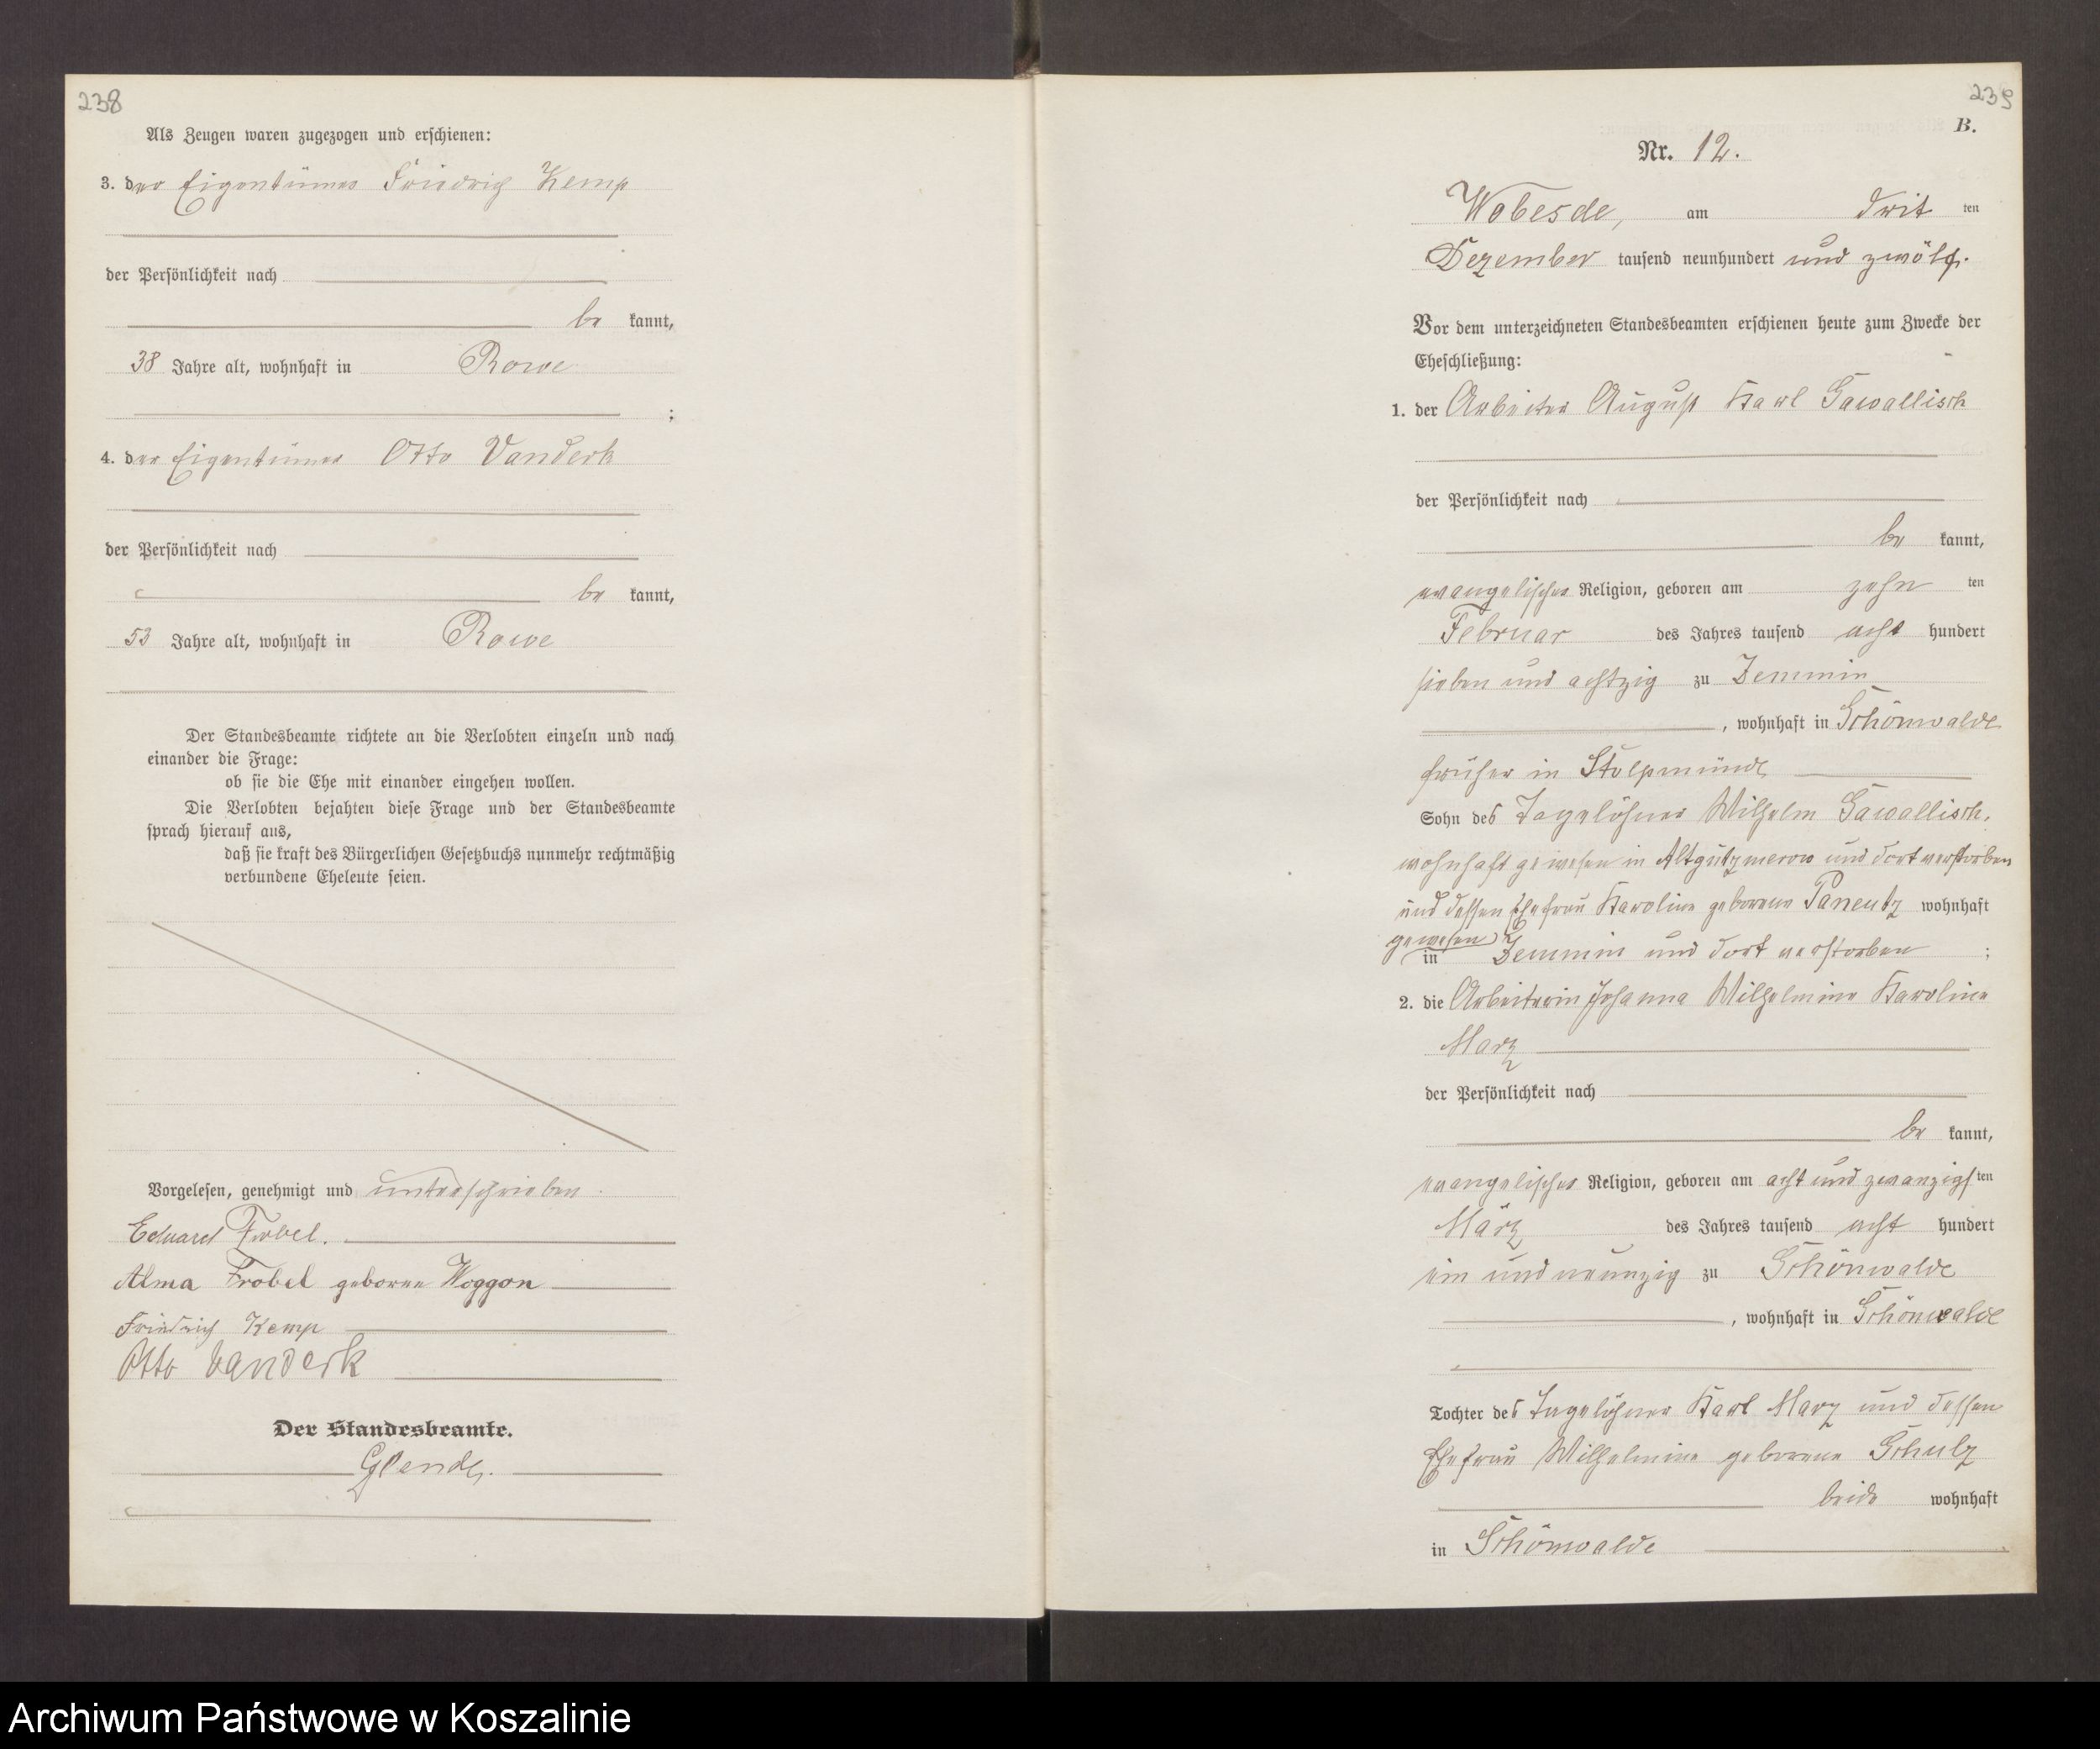 238
Als Zeugen waren zugezogen und erschienen:
3. der Eigentümer Friedrich Kemp
der Persönlichkeit nach
be kannt,
38 Jahre alt, wohnhaft in Rowe
;
4. der Eigentümer Otto Vanderk
der Persönlichkeit nach
be kannt,
53 Jahre alt, wohnhaft in Rowe
Der Standesbeamte richtete an die Verlobten einzeln und nach
einander die Frage:
ob sie die Ehe mit einander eingehen wollen.
Die Verlobten bejahten diese Frage und der Standesbeamte
sprach hierauf aus,
daß sie kraft des Bürgerlichen Gesetzbuchs nunmehr rechtmäßig
verbundene Eheleute seien.
Vorgelesen, genehmigt und unterschrieben.
Eduard Frobel.
Alma Frobel geborene Woggon
Friedrich Kemp
Otto Vanderk
Der Standesbeamte.
239
B.
Nr. 12.
Wobesde, am drit ten
Dezember tausend neunhundert und zwölf.
Vor dem unterzeichneten Standesbeamten erschienen heute zum Zwecke der
Eheschließung:
1. der Arbeiter August Karl Gawallisch
der Persönlichkeit nach
be kannt,
evangelischer Religion, geboren am zehn ten
Februar des Jahres tausend acht hundert
sieben und achtzig zu Zemmin
, wohnhaft in Schönwalde
früher in Stolpmünde
Sohn des Tagelöhner Wilhelm Gawallisch,
wohnhaft gewesen in Altgutzmerow und dort verstorben
und dessen Ehefrau Karoline geborene wohnhaft
gewesen
in Zemmin und dort verstorben ;
2. die Arbeiterin Johanna Wilhelmine Karoline
Marz
der Persönlichkeit nach
be kannt,
evangelischer Religion, geboren am acht und zwanzigs ten
März des Jahres tausend acht hundert
ein und neunzig zu Schönwalde
, wohnhaft in Schönwalde
Tochter des Tagelöhner Karl Marz und dessen
Ehefrau Wilhelmine geborene Schulz
beide wohnhaft
in Schönwalde
Archiwum Państwowe w Koszalinie